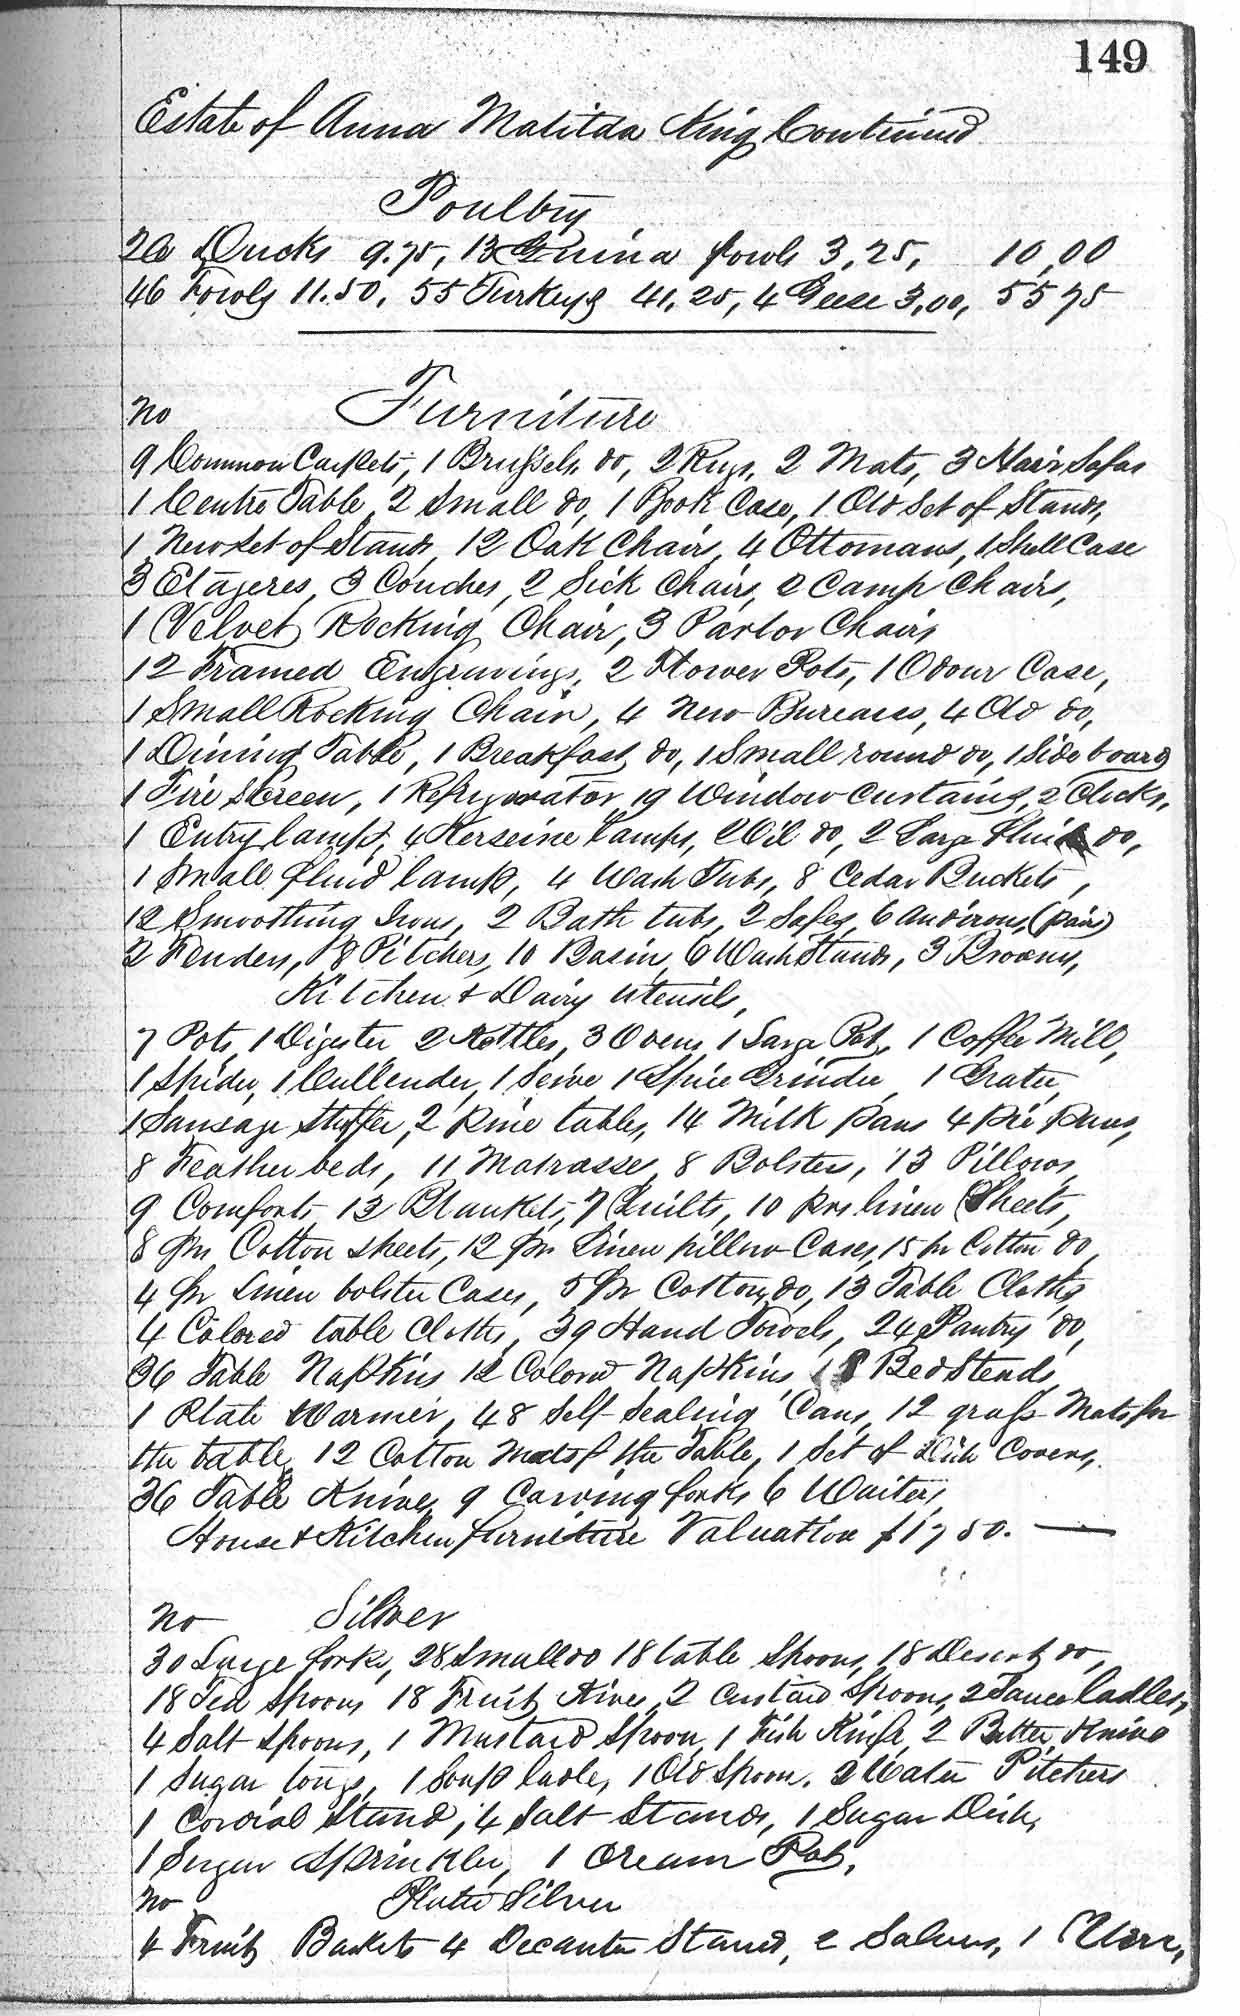 149
Estate of Anna Matilda King Continued
Poultry
Ducks 9.75, 13 Guina fowls 3,25, 10,00
46 Fowls 11.50, 55 Turkeys 41,25, 4 Geese 3,00, 55 75
No Furniture
9 Common Carpets, 1 Brussels do, 2 Rugs, 2 Mats, 3 Hair Sofas
1 Centre Table, 2 Small do, 1 Book Case, 1 Old Set of Stands,
1 New Set of Stands, 12 Oak Chairs, 4 Ottomans, 1 Shell Case
3 Etageres, 3 Couches, 2 Sick Chairs, 2 Camp Chairs,
1 Velvet Rocking Chair, 3 Parlor Chairs
12 Framed Engravings, 2 Flower Pots, 1 Odour Case,
1 Small Rocking Chair, 4 New Bureaus, 4 Old do,
1 Dining Table, 1 Breakfast do, 1 Small round do, 1 Side board
1 Fire Screen, 1 Refrigerator, 19 Window Curtains, 2 Clocks,
1 Entry lamp, 4 Kerseine lamps, Oil do, 2 Large fluid do,
1 Small fluid lamp, 4 Wash Tubs, 8 Cedar Buckets,
12 Smoothing Irons, 2 Bath tubs, 2 Safes, 6 Andirons, (pair)
2 Fenders, 8 Pitchers, 10 Basins, 6 Wash Stands, 3 Brooms,
Kitchen & Dairy Utensils,
7 Pots, 1 Digester 2 Kettles, 3 Ovens, 1 Large Pot, 1 Coffee Mill,
1 Spider, 1 Cullender, 1 Seive 1 Spice Grinder 1 Grater,
1 Sausage Stuffer, 2 Pine tables, 14 Milk pans 4 Pie pans,
8 Feather beds, 11 Matrasses, 8 Bolsters, 13 Pillows,
9 Comforts, 13 Blankets, 7 Quilts, 10 prs linen Sheets,
8 pr Cotton sheets, 12 pr Linen pillow Cases, 15 pr Cotton do,
4 pr Linen bolster Cases, 5 pr Cotton do, 13 Table Cloths
4 Colored table Cloths, 39 Hand Towels, 24 Pantry do,
36 Table Napkins 12 Colored Napkins, Bed Steads
1 Plate Warmer, 48 Self Sealing Cans, 12 grass Mats for
the table, 12 Cotton Mats f the Table, 1 Set of Dish Covers,
36 Table Knives, 9 Carving forks 6 Waiters,
House & Kitchen furniture Valuation $1750.—
No Silver
30 Large forks, 28 Small do 18 table Spoons, 18 Desert do,
18 Tea Spoons 18 Fruit Knives, 2 Custard Spoons, 2 Sauce ladles,
4 Salt Spoons, 1 Mustard Spoon, 1 Fish Knife, 2 Butter Knives
1 Sugar tongs, 1 Soup ladle, 1 Old Spoon. 2 Water Pitchers
1 Cordial Stand, 4 Salt Stands, 1 Sugar Dish,
1 Sugar Sprinkler, 1 Cream Pot,
No Plated Silver
4 Fruit Baskets 4 Decanter Stands, 2 Salvers, 1